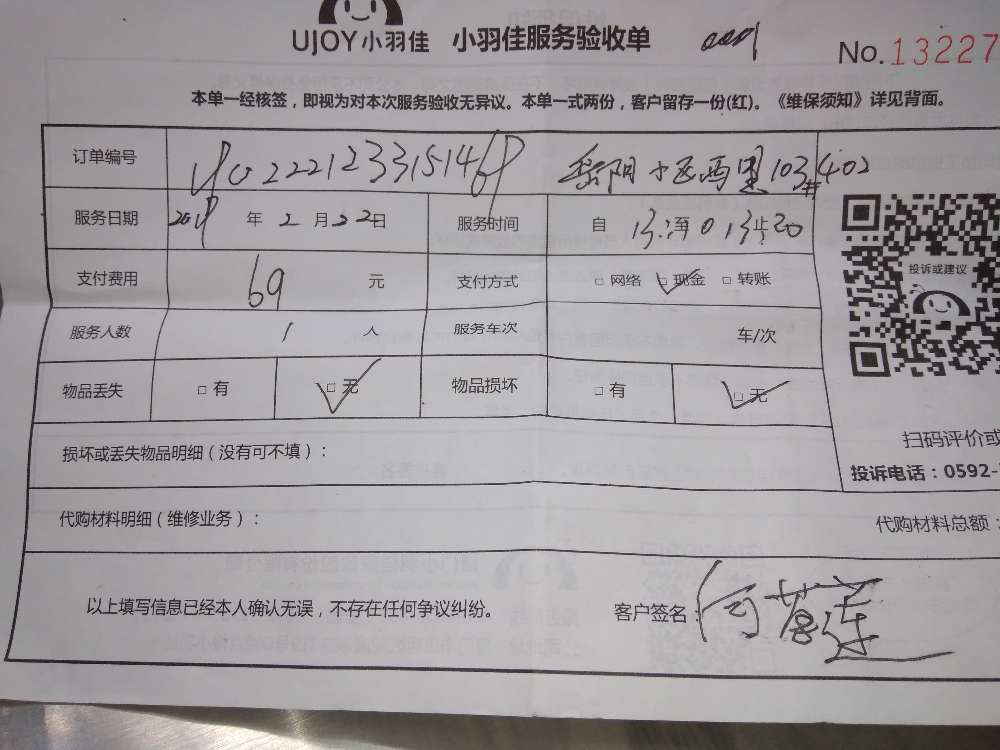 UJOY小羽佳 小羽佳服务验收单 No.13227
本单一经核签，即视为对本次服务验收无异议。本单一式两份，客户留存一份(红)。《维保须知》详见背面。
订单编号 岳阳小区西里103#402
服务日期 年2月22日 服务时间 自 至 止
支付费用 69 元 支付方式 □网络 □现金 □转账
投诉或建议
服务人数 1 人 服务车次 车/次
物品丢失 □有 □无 物品损坏 □有 □无
扫码评价或
损坏或丢失物品明细（没有可不填）：
投诉电话：0592-
代购材料明细（维修业务）： 代购材料总额：
以上填写信息已经本人确认无误，不存在任何争议纠纷。 客户签名：